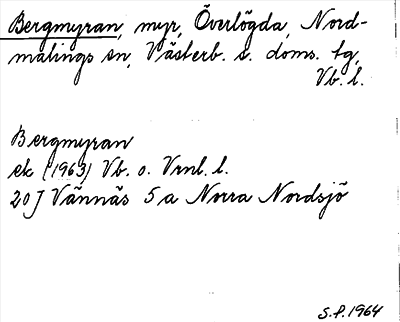 Bergmyran, myr, Överlögda, Nord-
malings sn, Västerb. s. doms. tg,
Vb. l.
Bergmyran
ek (1963) Vb. o. Vrnl. l.
20 J Vännäs 5 a Norra Nordsjö
S.P. 1964